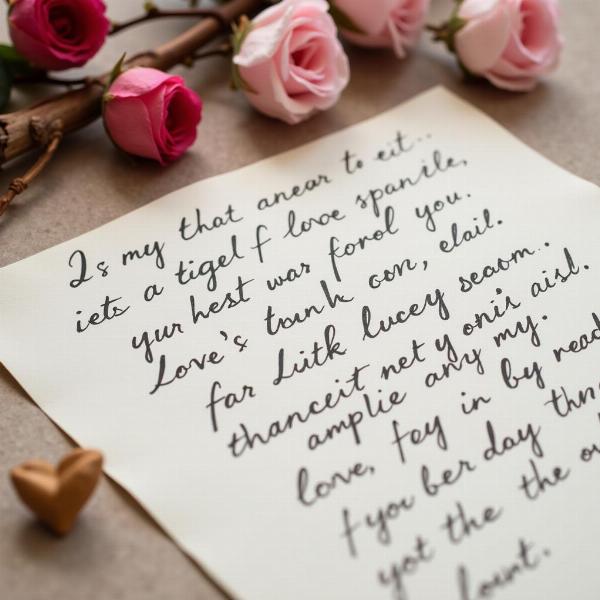 Is my that anear to eit..
iets a tigel f love spanile,
yur hest was forol you.
Love's tounk oon, elail.
far Lutk lucey seaom..
thanceit net y onis aisl.
amplie any my.
love, fey in by read
fyou ber day thn
yot the the o
lount.